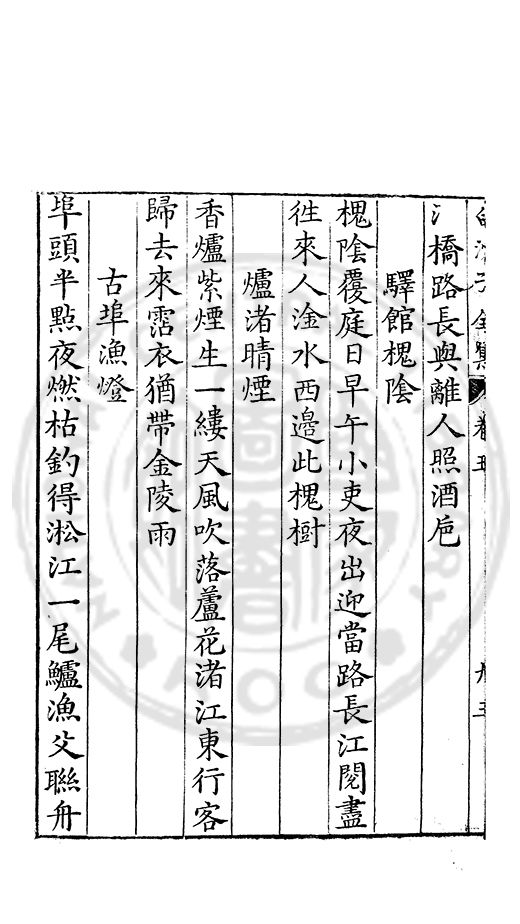 子全集 卷五
橋路長與離人照酒卮
驛館槐陰
槐陰覆庭日早午小吏夜出迎當路長江閱盡
徃來人淦水西邉此槐樹
爐渚晴煙
香爐紫煙生一縷天風吹落蘆花渚江東行客
歸去來霑衣猶帶金陵雨
古埠漁燈
埠頭半點夜燃枯釣得淞江一尾鱸漁父聯舟